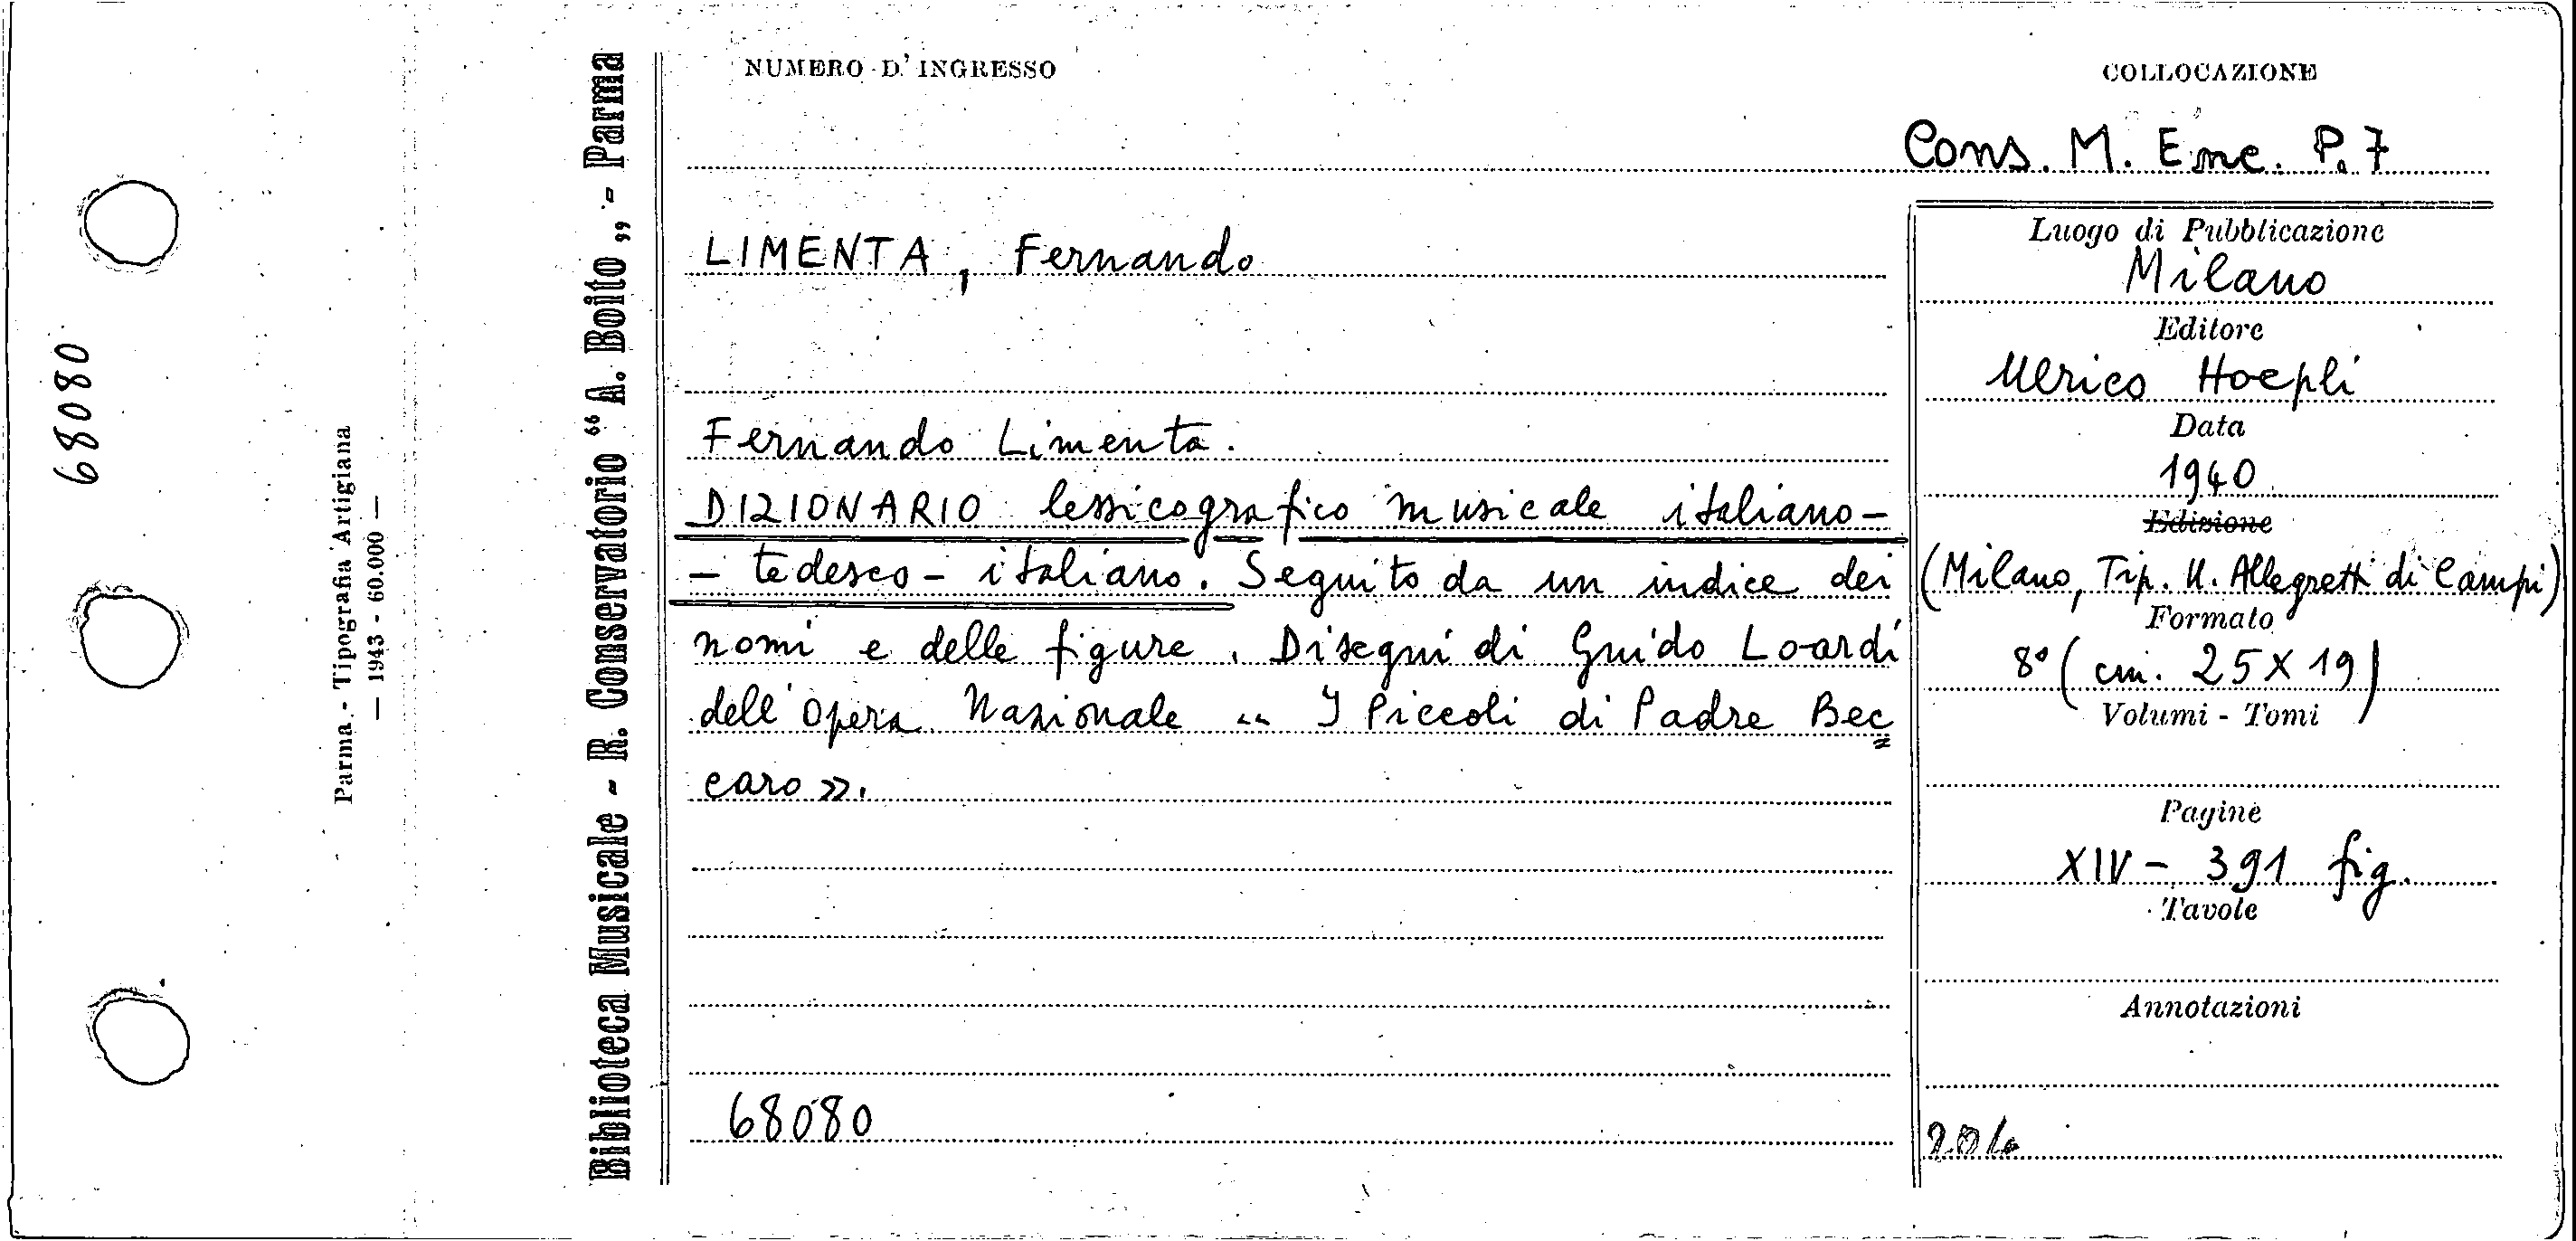 68080
Parma - Tipografia Artigiana
— 1943 - 60.000 —
Biblioteca Musicale - R. Conservatorio “A. Boito„ - Parma
NUMERO D'INGRESSO
COLLOCAZIONE
Cons. M. Enc. P. 7
LIMENTA, Fernando
Fernando Limenta.
DIZIONARIO lessicografico musicale italiano-
- tedesco - italiano. Seguito da un indice dei
nomi e delle figure. Disegni di Guido Loardi
dell'Opera Nazionale “ I Piccoli di Padre Bec=
caro ».
68080
Luogo di Pubblicazione
Milano
Editore
Ulrico Hoepli
Data
1940
Edizione
(Milano, Tip. U. Allegretti di Campi)
Formato
8° (cm. 25 X 19)
Volumi - Tomi
Pagine
XIV - 391 fig.
Tavole
Annotazioni